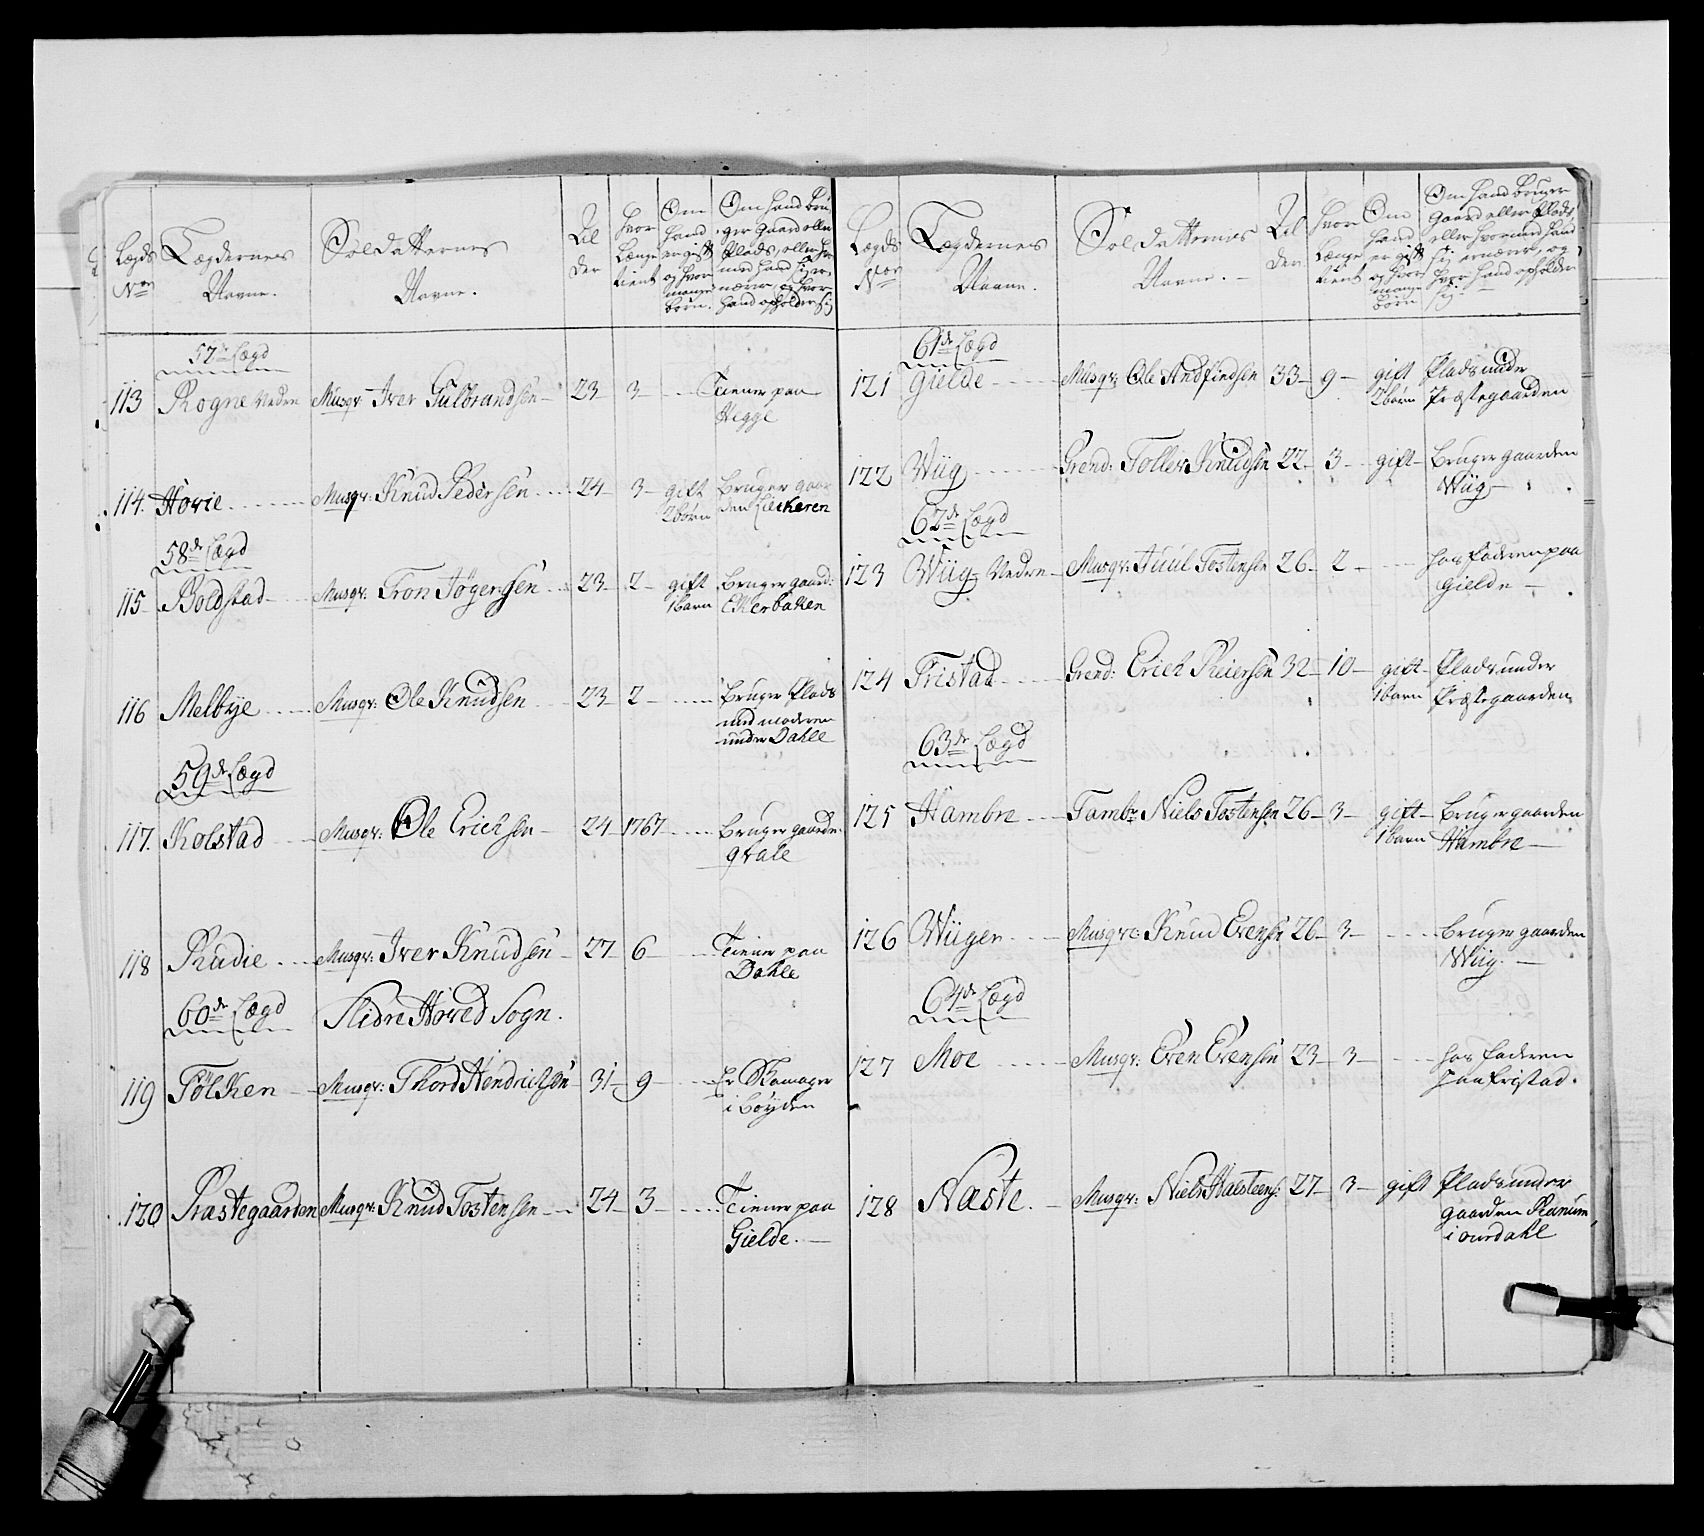 Lægds Nrn
Lægdernes Navne.
Soldatternes Navne.
Alder
hvor længe tient
Om hand er gift og hvor mange børn.
Om hand bruger Gaard eller Plads, eller hvor med hand sig ernærer, og hvor hand opholder sig
57de Lægd
113 Rogne Nedre Musqr: Iver Gulbrandsen 23 3 Tiener paa
Vigge
114. Hovie Musqr: Knud Pedersen 24 3 gift Bruger gaar
2 børn den Lieckeren
58de Lægd
115 Boldstad Musqr: Tron Jøgersen 23 2 gift Bruger gaard:
1 barn Ekerbaken
116 Melbye Musqr: Ole Knudsen 23 2 Bruger Plads
med moderen
under Dahle
59de Lægd
117. Kolstad Musqr: Ole Erichsen 24 1767 Bruger gaarden
qvale
118 Rudie Musqr: Iver Knudsen 27 6 Tiener paa
Dahle
60de Lægd Slidre Hoved Sogn.
119 Følken Musqr: Thord Hendrichsen 31 9 Er Skomager
i bøyden
120 Præstegaarden Musqr: Knud Tostensen 24 3 Tiener paa
Gielde.
Lægds Nrn
Lægdernes Navne.
Soldatternes Navne.
Alder
hvor længe tient
Om hand er gift og hvor mange børn
Om hand bruger Gaard eller Plads, eller hvormed hand sig ernærer, og hvor hand opholder sig
61de Lægd
121 Gielde Musqr: Ole Andfindsen 33 9 gift Plads under
2 børn Præstegaarden
122 Wiig Grend: Tollev Knudsen 22 3 gift Bruger gaarden
Wiig
62de Lægd
123 Wiig Nedre Musqr: Juul Tostensen 26 2 hos faderen paa
Gielde
124 Fristad Grend: Erich Peiersen 32 10 gift Plads under
1 barn Præstegaarden
63de Lægd
125 Hambre Tambr Niels Tostensen 26 3 gift Bruger gaarden
1 barn Hambre
126 Wiigen Musqr: Knud Evensen 26 3 Bruger gaarden
Wiig.
64de Lægd
127 Moe Musqr: Even Evensen 23 3 hos faderen
paa fristad.
128 Næste. Musqr: Niels Halsteens: 27 3 gift Plads under
gaarden Ranum
i ourdahl